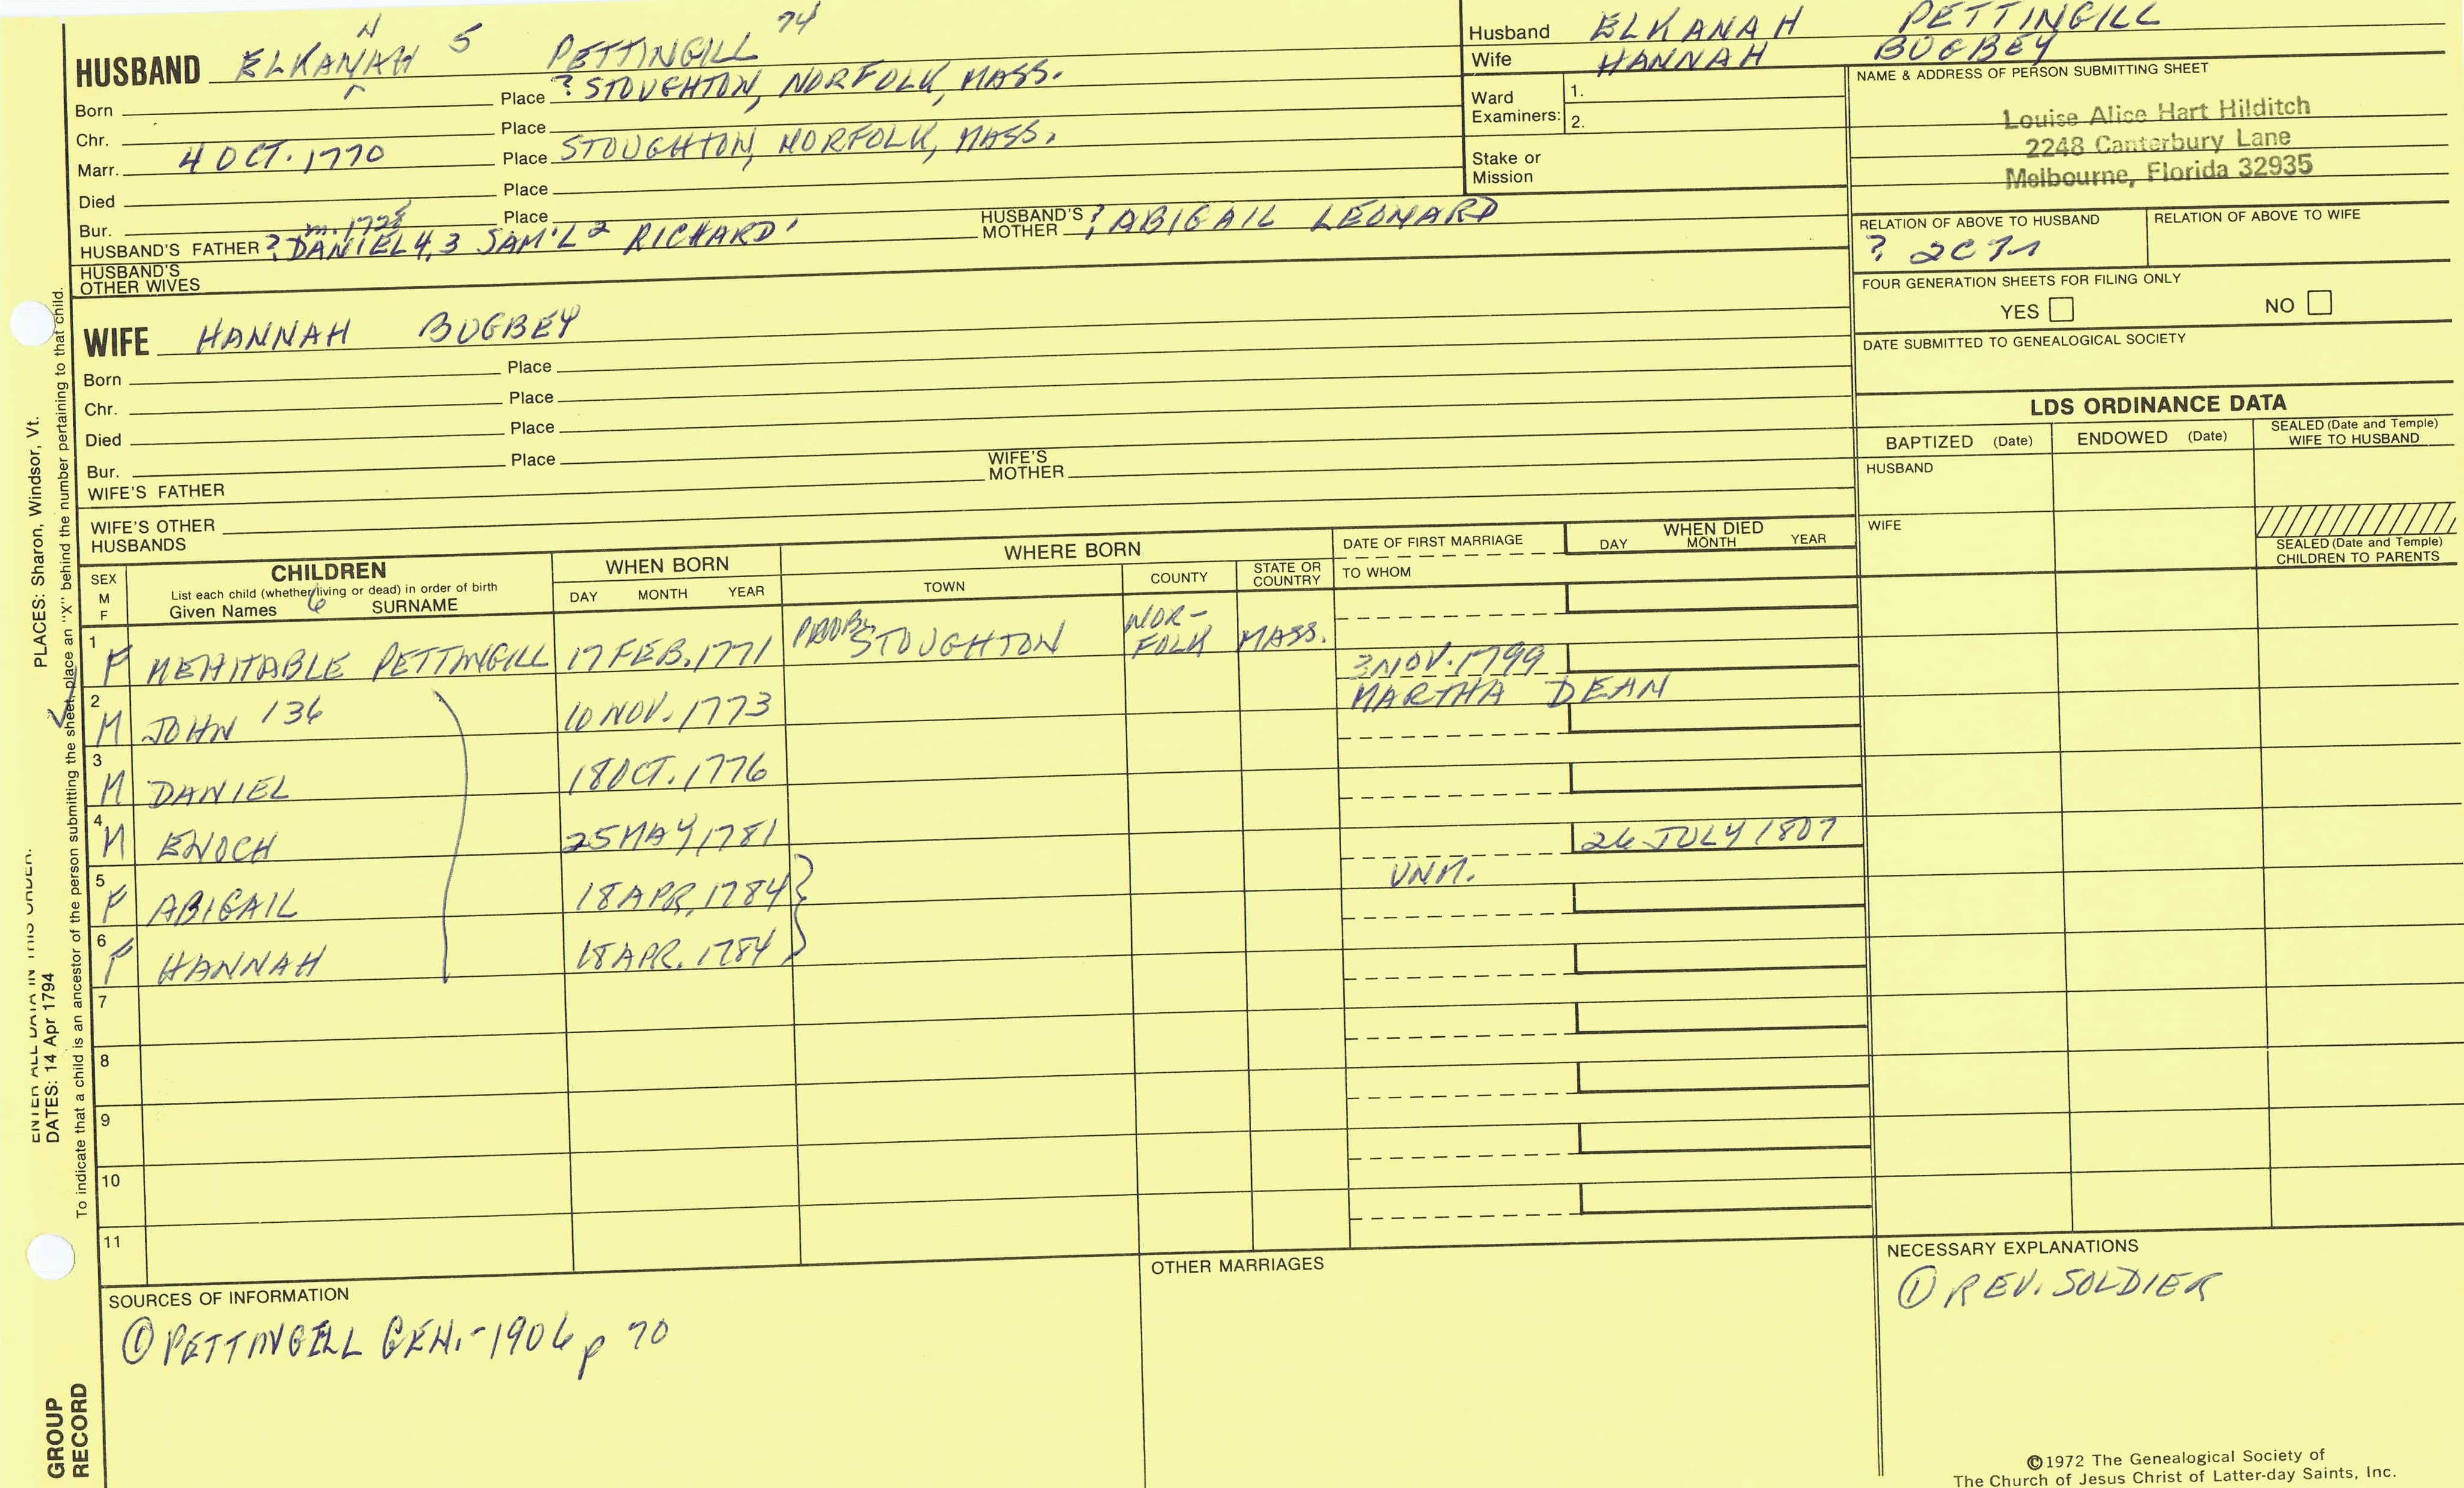 HUSBAND ELKANAH 5 PETTINGILL 74
N
Born Place ? STOUGHTON, NORFOLK, MASS.
Chr. Place
Marr. 4 OCT. 1770 Place STOUGHTON, NORFOLK, MASS.
Died Place
Bur. Place
m. 1728
HUSBAND'S FATHER ? DANIEL 4, 3 SAM'L 2 RICHARD 1 HUSBAND'S MOTHER ? ABIGAIL LEONARD
HUSBAND'S OTHER WIVES
WIFE HANNAH BUGBEY
Born Place
Chr. Place
Died Place
Bur. Place
WIFE'S FATHER WIFE'S MOTHER
WIFE'S OTHER HUSBANDS
Husband ELKANAH PETTINGILL
Wife HANNAH BUGBEY
Ward Examiners: 1.
2.
Stake or Mission
NAME & ADDRESS OF PERSON SUBMITTING SHEET
Louise Alice Hart Hilditch
2248 Canterbury Lane
Melbourne, Florida 32935
RELATION OF ABOVE TO HUSBAND RELATION OF ABOVE TO WIFE
?
FOUR GENERATION SHEETS FOR FILING ONLY
YES NO
DATE SUBMITTED TO GENEALOGICAL SOCIETY
LDS ORDINANCE DATA
BAPTIZED (Date) ENDOWED (Date) SEALED (Date and Temple) WIFE TO HUSBAND
HUSBAND
WIFE
SEALED (Date and Temple) CHILDREN TO PARENTS
SEX M F CHILDREN List each child (whether living or dead) in order of birth Given Names 6 SURNAME
WHEN BORN DAY MONTH YEAR
WHERE BORN TOWN COUNTY STATE OR COUNTRY
DATE OF FIRST MARRIAGE TO WHOM
WHEN DIED DAY MONTH YEAR
1 F MEHITABLE PETTINGILL 17 FEB. 1771 PROB. STOUGHTON NOR-FOLK MASS.
2 M JOHN 136 10 NOV. 1773 3 NOV. 1799 MARTHA DEAN
3 M DANIEL 18 OCT. 1776
4 M ENOCH 25 MAY 1781 UNM. 26 JULY 1807
5 F ABIGAIL 18 APR. 1784
6 F HANNAH 18 APR. 1784
7
8
9
10
11
SOURCES OF INFORMATION
① PETTINGELL GEN. - 1906 p 70
OTHER MARRIAGES
NECESSARY EXPLANATIONS
① REV. SOLDIER
©1972 The Genealogical Society of
The Church of Jesus Christ of Latter-day Saints, Inc.
PLACES: Sharon, Windsor, Vt.
ENTER ALL DATA IN THIS ORDER:
DATES: 14 Apr 1794
To indicate that a child is an ancestor of the person submitting the sheet, place an "X" behind the number pertaining to that child.
GROUP
RECORD